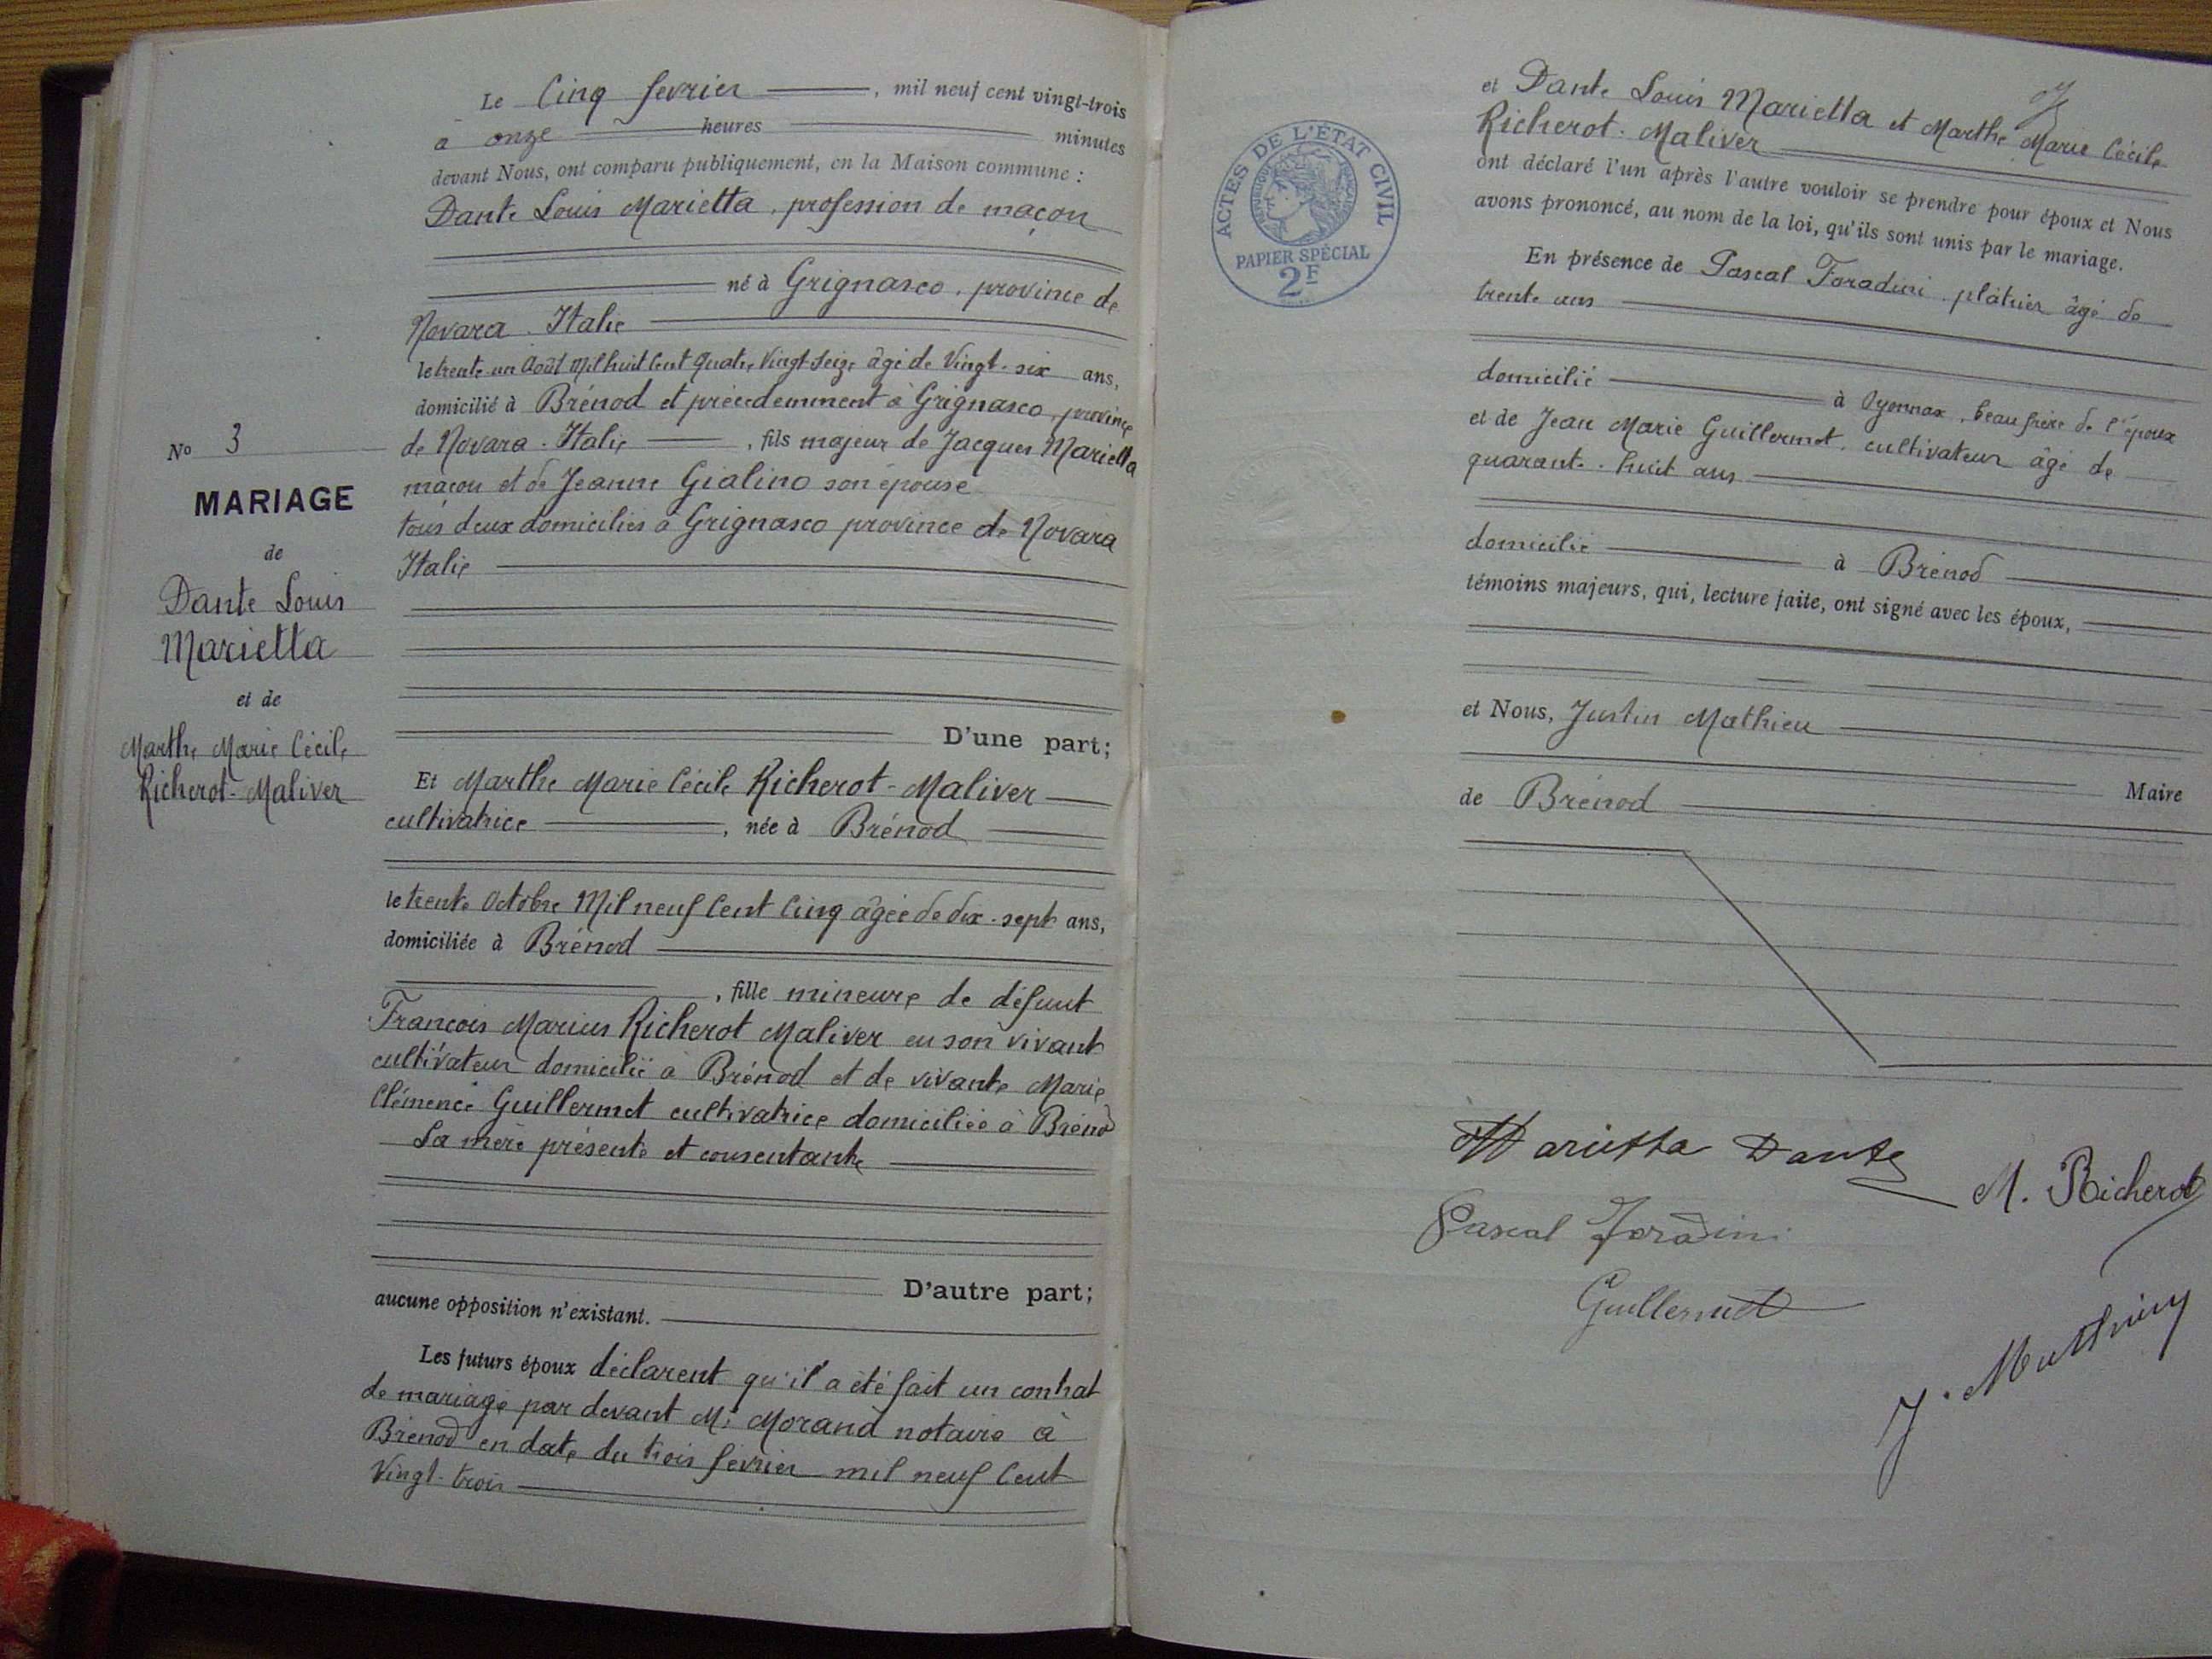 Le Cinq fevrier, mil neuf cent vingt-trois
à onze heures minutes
devant Nous, ont comparu publiquement, en la Maison commune :
Dante Louis Marietta, profession de maçon
né à Grignasco, province de
Novara. Italie
le trente un Août Mil huit Cent Quatre Vingt-Seize âgé de Vingt-six ans,
domicilié à Brénod et précédemment à Grignasco, province
de Novara. Italie, fils majeur de Jacques Marietta
maçon et de Jeanne Gialino son épouse
tous deux domiciliés à Grignasco province de Novara
Italie
D'une part;
Et Marthe Marie Cécile Richerot-Maliver
cultivatrice, née à Brénod
le trente Octobre Mil neuf Cent Cinq âgée de dix-sept ans,
domiciliée à Brénod
, fille mineure de défunt
François Marius Richerot Maliver en son vivant
cultivateur domicilié à Brénod et de vivante Marie
Clémence Guillermet cultivatrice domiciliée à Brénod
La mère présente et consentante
D'autre part;
aucune opposition n'existant.
Les futurs époux déclarent qu'il a été fait un contrat
de mariage par devant Me Morand notaire à
Brénod en date du trois fevrier mil neuf Cent
Vingt-trois
No 3
MARIAGE
de
Dante Louis
Marietta
et de
Marthe Marie Cécile
Richerot-Maliver
ACTES DE L'ÉTAT CIVIL
PAPIER SPÉCIAL
2F
et Dante Louis Marietta et Marthe Marie Cécile
Richerot-Maliver
ont déclaré l'un après l'autre vouloir se prendre pour époux et Nous
avons prononcé, au nom de la loi, qu'ils sont unis par le mariage.
En présence de Pascal Foradini plâtrier âgé de
trente ans
domicilié à Oyonnax, beau frère de l'époux
et de Jean Marie Guillermet, cultivateur âgé de
quarante-huit ans
domicilié à Brénod
témoins majeurs, qui, lecture faite, ont signé avec les époux,
et Nous, Justin Mathieu
Maire
de Brénod
Marietta Dante
M. Richerot
Pascal Foradini
Guillermet
J. Mathieu